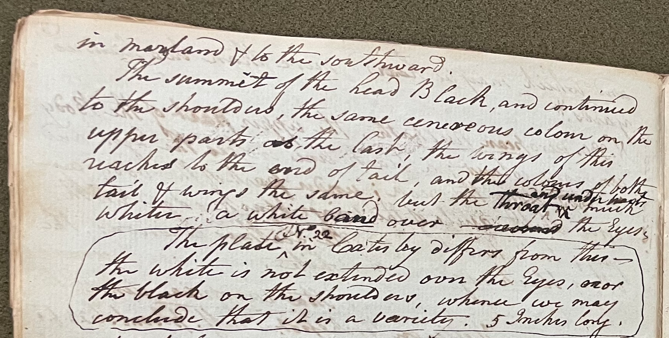 in maryland & to the southward.
The summit of the head Black, and continued
to the shoulders, the same cenereous colour on the
upper parts as the last, the wings of this
reaches to the end of tail, and the colours of both
tail & wings the same; but the throat and under much
whiter, a white band over the Eyes,
The plate in Catesby differs from this –
No. 22
the white is not extended over the Eyes, nor
the black on the shoulders, whence we may
conclude that it is a variety. 5 Inches long.